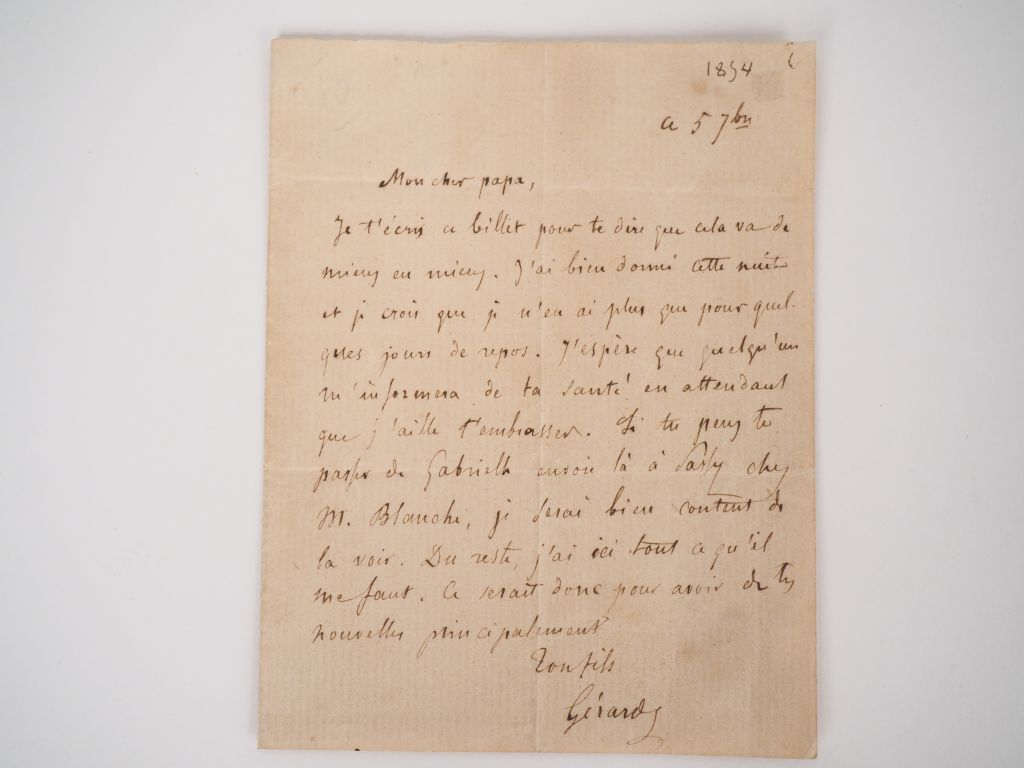 1854
ce 5 7bre
Mon cher papa,
Je t'écris ce billet pour te dire que cela va de
mieux en mieux. J'ai bien dormi cette nuit
et je crois que je n'en ai plus que pour quel-
ques jours de repos. J'espère que quelqu'un
m'informera de ta santé en attendant
que j'aille t'embrasser. Si tu peux te
passer de Gabrielle envoie là à Passy chez
M. Blanche, je serai bien content de
la voir. Du reste, j'ai ici tout ce qu'il
me faut. Ce serait donc pour avoir de tes
nouvelles principalement
Ton fils
Gérard